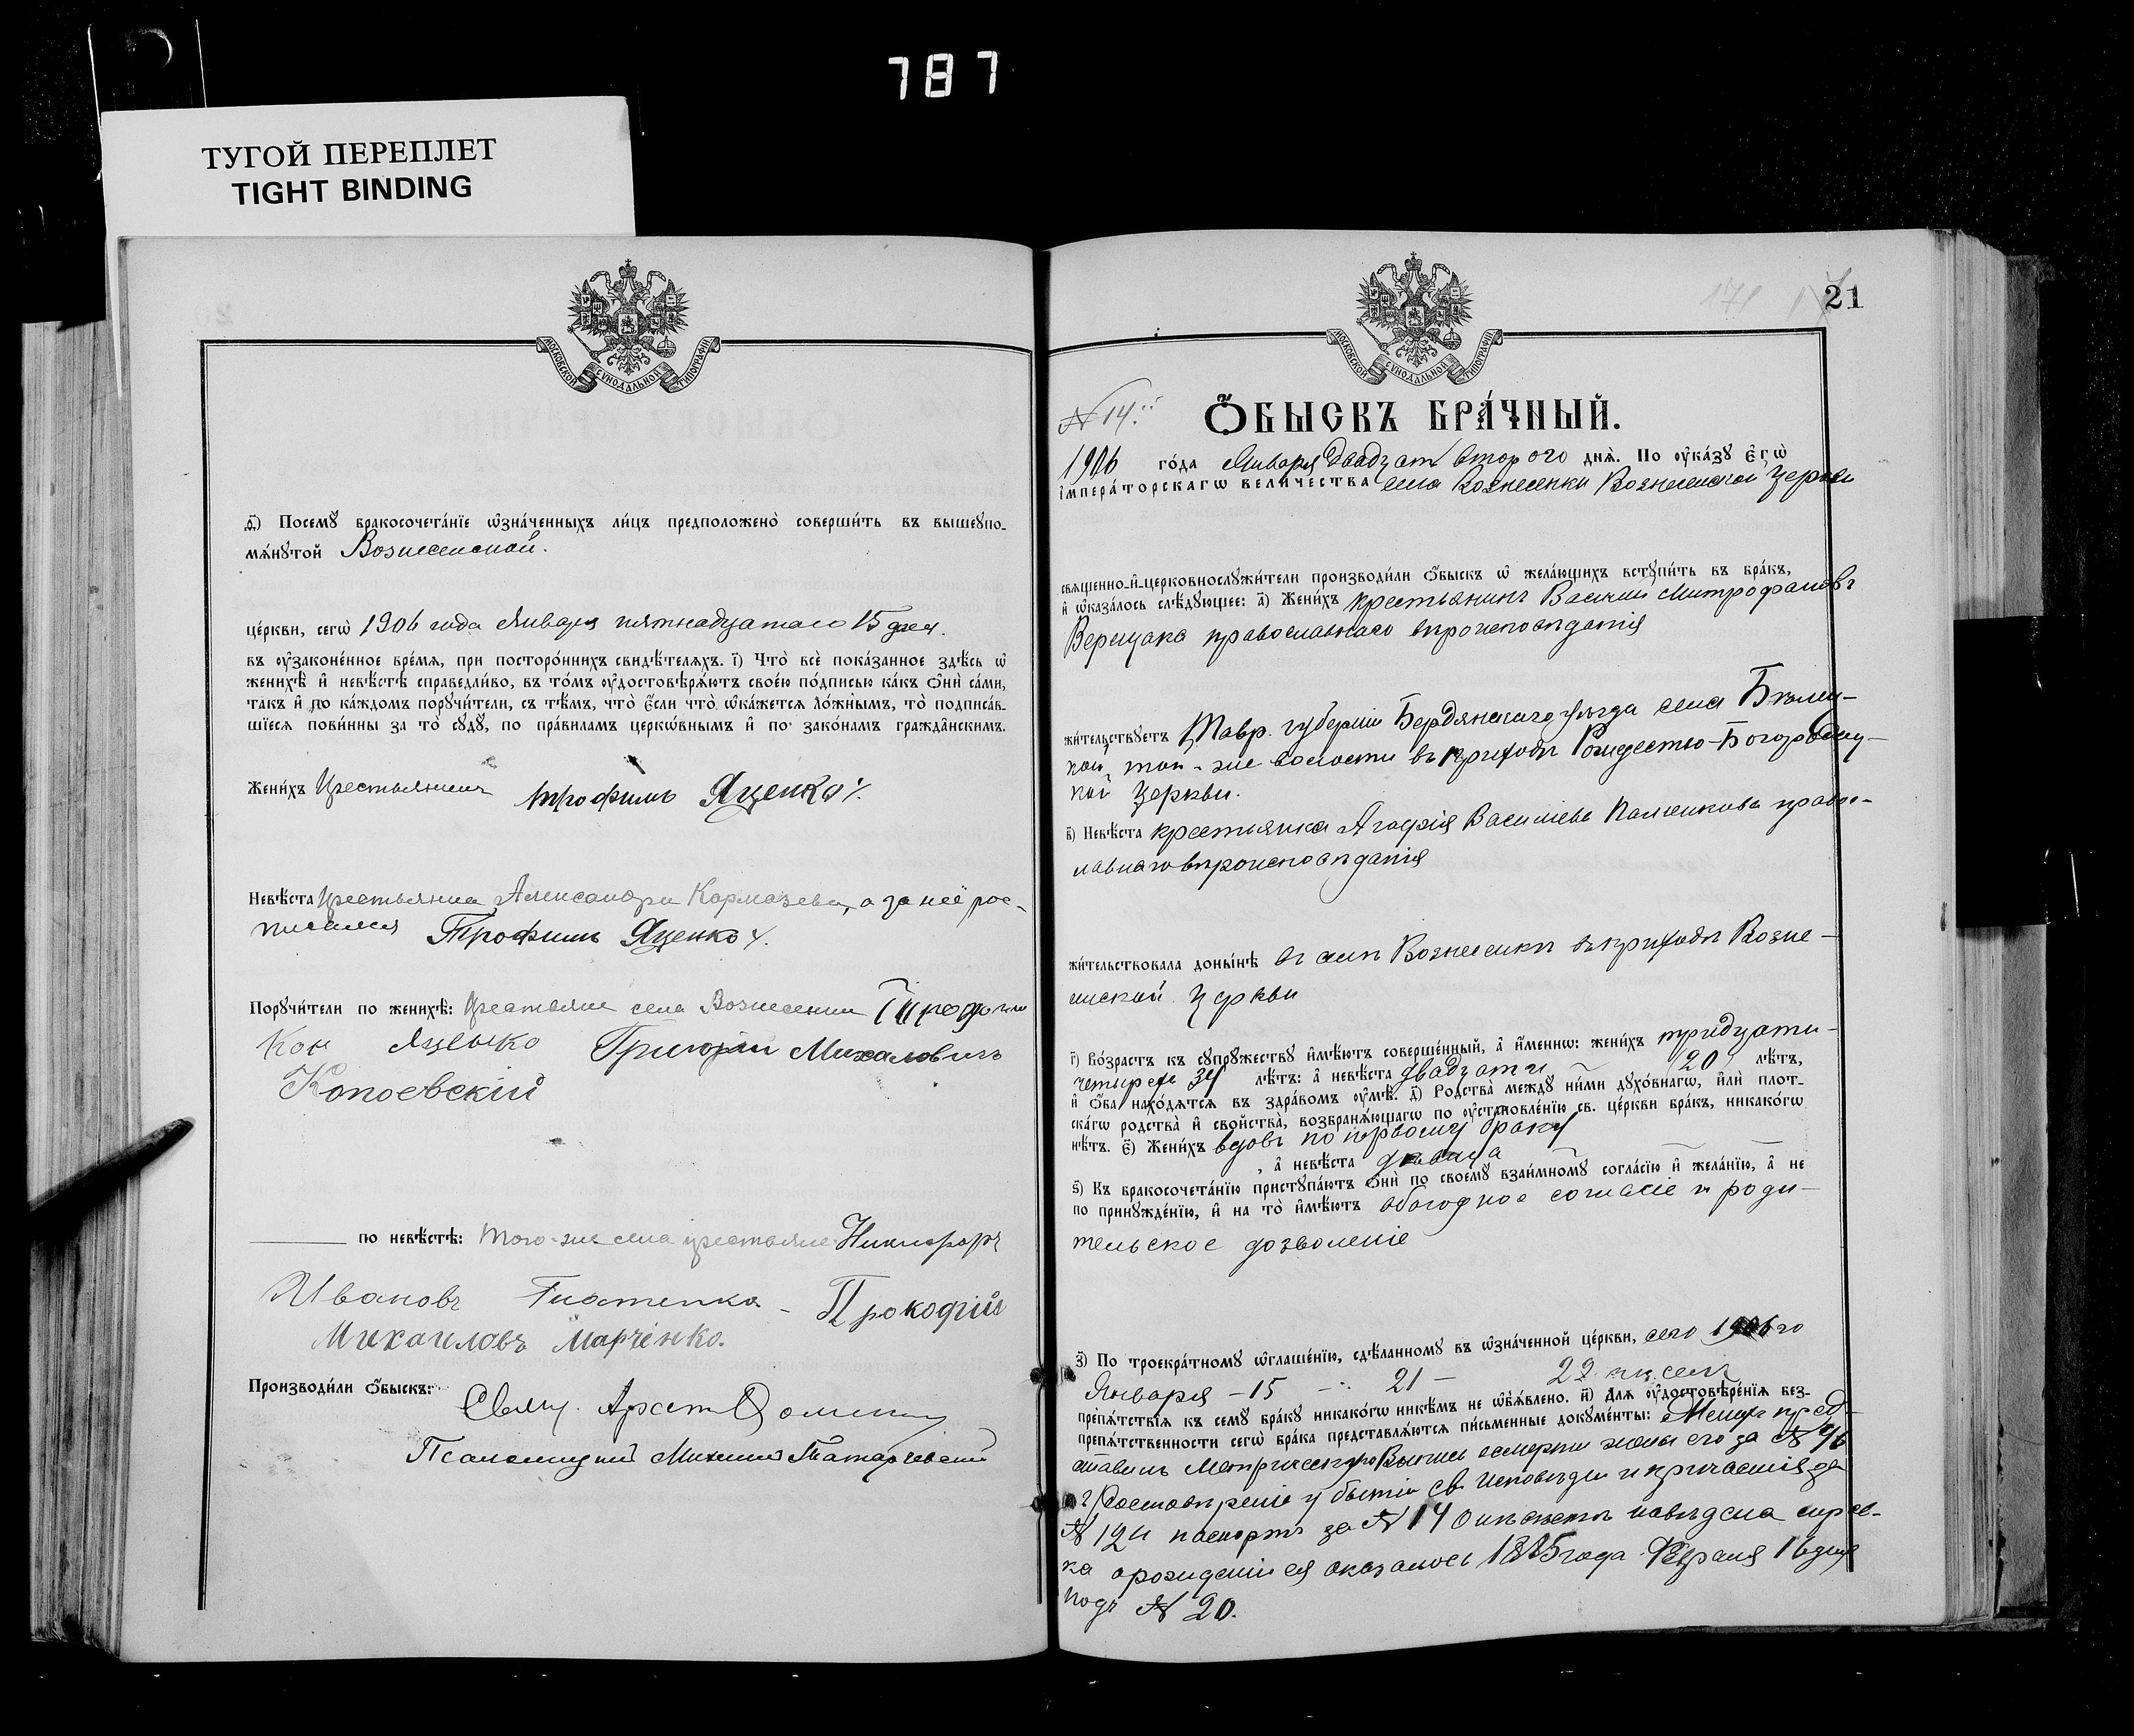 787
ТУГОЙ ПЕРЕПЛЕТ
TIGHT BINDING
МОСКОВСКОЙ СѴНОДАЛЬНОЙ ТИПОГРАФІИ
ѳ҃) Посемꙋ̀ бракосочета́нїе ѡ҆зна́ченныхъ ли́цъ предположено̀ соверши́ть въ вышеꙋпо-
мѧ́нꙋтой Вознесенской.
це́ркви, сегѡ̀ 1906 года Января пятнадцатаго 15 дня.
въ ᲂу҆законе́нное вре́мѧ, при посторо́ннихъ свидѣ́телѧхъ. і҃) Что̀ всѐ пока́занное здѣ́сь ѡ҆
женихѣ̀ и҆ невѣ́стѣ справедли́во, въ то́мъ ᲂу҆достовѣрѧ́ютъ свое́ю по́дписью ка́къ ѻ҆нѝ са́ми,
та́къ и҆ по ка́ждомъ порꙋчи́тели, съ тѣ́мъ, что̀ є҆́сли что̀ ѡ҆ка́жетсѧ ло́жнымъ, то̀ подписа́в-
шїесѧ пови́нны за то̀ сꙋдꙋ̀, по пра́виламъ церкѡ́внымъ и҆ по зако́намъ гражда̂нскимъ.
Жени́хъ Крестьянинъ Трофимъ Яценко
Невѣ́ста Крестьянка Александра Кармазева, а за неё рос-
писался Трофимъ Яценко
Порꙋчи́тели по женихѣ̀: Крестьяне села Вознесенки
Яценко Григорій Михаловичъ
Копоевскій
по невѣ́стѣ: Того-же села крестьяне Никифоръ
Ивановъ Гнатенко - Прокофій
Михаиловъ Марченко.
Производи́ли ѻ҆́быскъ: Свящ.
Псаломщикъ Михаилъ Татарчевскій
171
21
МОСКОВСКОЙ СѴНОДАЛЬНОЙ ТИПОГРАФІИ
№ 14.
Ѻ҆́БЫСКЪ БРА́ЧНЫЙ.
1906 го́да Января двадцать второго днѧ̀. По ᲂу҆ка́зꙋ Є҆гѡ̀
і҆мпера́торскагѡ вели́чества села Вознесенки Вознесенской Церкви
свѧщенно-и҆-церковнослꙋжи́тели производи́ли ѻ҆́быскъ ѡ҆ жела́ющихъ встꙋпи́ть въ бра́къ,
и҆ ѡ҆каза́лось слѣ́дꙋющее: а҃) Жени́хъ крестьянинъ Василій Митрофановъ
Верещака православнаго вѣроисповѣданія
жи́тельствꙋетъ Тавр. губерніи Бердянскаго уѣзда села Бѣлен-
кой, той-же волости въ приходѣ Рождество-Богородиц-
кой Церкви.
в҃) Невѣ́ста крестьянка Агафія Васильева Паленкова правос-
лавнаго вѣроисповѣданія
жи́тельствовала доны́нѣ въ селѣ Вознесенкѣ въ приходѣ Возне-
сенской Церкви
г҃) Во́зрастъ къ сꙋпрꙋ́жествꙋ и҆мѣ́ютъ соверше́нный, а҆ и҆́меннѡ: жени́хъ тридцати-
четырехъ 34 лѣ́тъ: а҆ невѣ́ста двадцати 20 лѣ́тъ,
и҆ ѻ҆́ба нахо́дѧтсѧ въ здра́вомъ ᲂу҆мѣ̀. д҃) Родства̀ междꙋ̀ ни́ми дꙋхо́внагѡ, и҆лѝ плот-
ска́гѡ родства̀ и҆ сво́йства, возбранѧ́ющагѡ по ᲂу҆становле́нїю св. це́ркви бра́къ, никако́гѡ
нѣ́тъ. є҃) Жени́хъ вдовъ по первому браку
, а҆ невѣ́ста дѣвица
ѕ҃) Къ бракосочета́нїю пристꙋпа́ютъ ѻ҆нѝ по своемꙋ̀ взаи́мномꙋ согла́сїю и҆ жела́нїю, а҆ не
по принꙋжде́нїю, и҆ на то̀ и҆мѣ́ютъ обоюдное согласіе и роди-
тельское дозволеніе
з҃) По троекра́тномꙋ ѡ҆глаше́нїю, сдѣ́ланномꙋ въ ѡ҆зна́ченной це́ркви, сего 1906 го
Января - 15 - 21 - 22 чиселъ
препѧ́тствїѧ къ семꙋ̀ бра́кꙋ никако́гѡ никѣ́мъ не ѡ҆б̾ѧ́влено. и҃) Длѧ ᲂу҆достовѣре́нїѧ без-
препѧ́тственности сегѡ̀ бра́ка представлѧ́ютсѧ пи́сьменные докꙋме́нты: Женихъ пред-
ставилъ Метрическую Выпись о смерти жены его за № 46
Удостовѣреніе у бытіи Св. Исповѣди и причастія за
№ 124 паспортъ за № 14 о невѣстѣ наведена справ-
ка о рожденіи ея оказалось 1885 года Февраля 1 дня
подъ № 20.